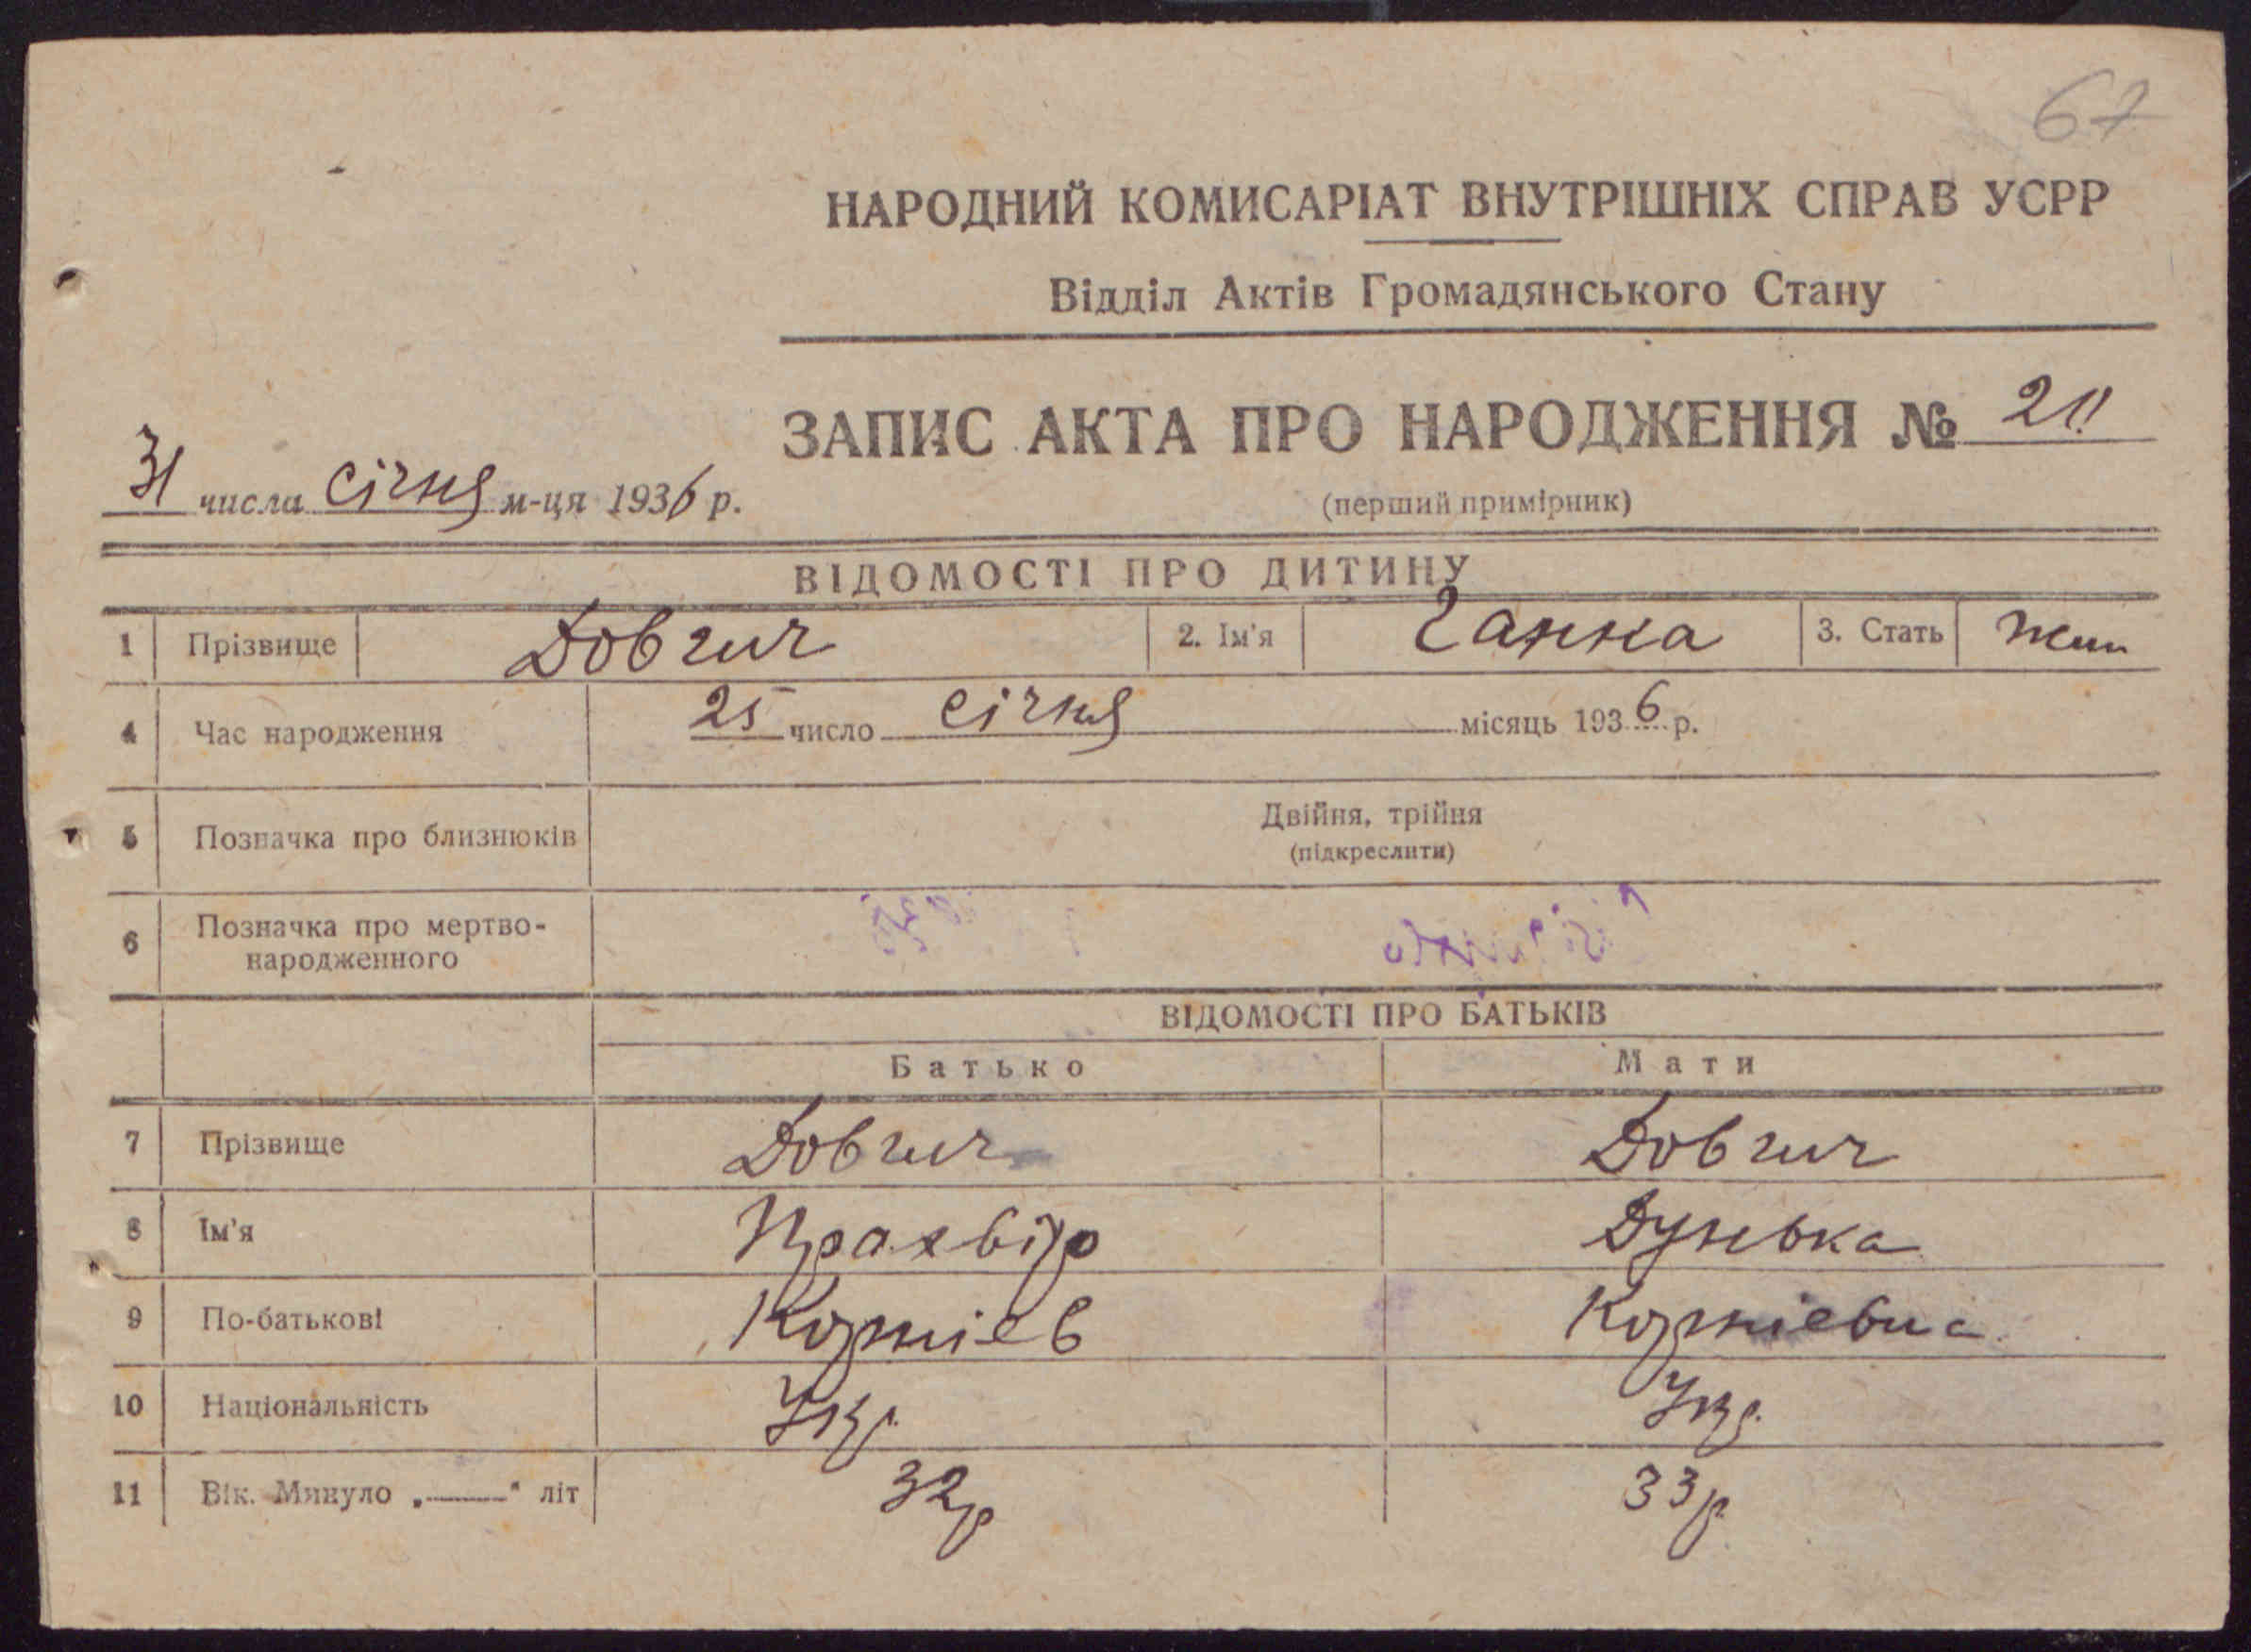 67
НАРОДНИЙ КОМИСАРІАТ ВНУТРІШНІХ СПРАВ УСРР
Відділ Актів Громадянського Стану
ЗАПИС АКТА ПРО НАРОДЖЕННЯ №
31 числа січня м-ця 1936 р.
(перший примірник)
ВІДОМОСТІ ПРО ДИТИНУ
1 Прізвище Довгич 2. Ім'я Ганна 3. Стать жин
4 Час народження 25 число січня місяць 1936 р.
5 Позначка про близнюків Двійня, трійня
(підкреслити)
6 Позначка про мертво-
народженного
ВІДОМОСТІ ПРО БАТЬКІВ
Батько Мати
7 Прізвище Довгич Довгич
8 Ім'я Дунька
9 По-батькові Корнієв Корнієвна
10 Національність Укр. Укр.
11 Вік. Минуло „——“ літ 32р 33р